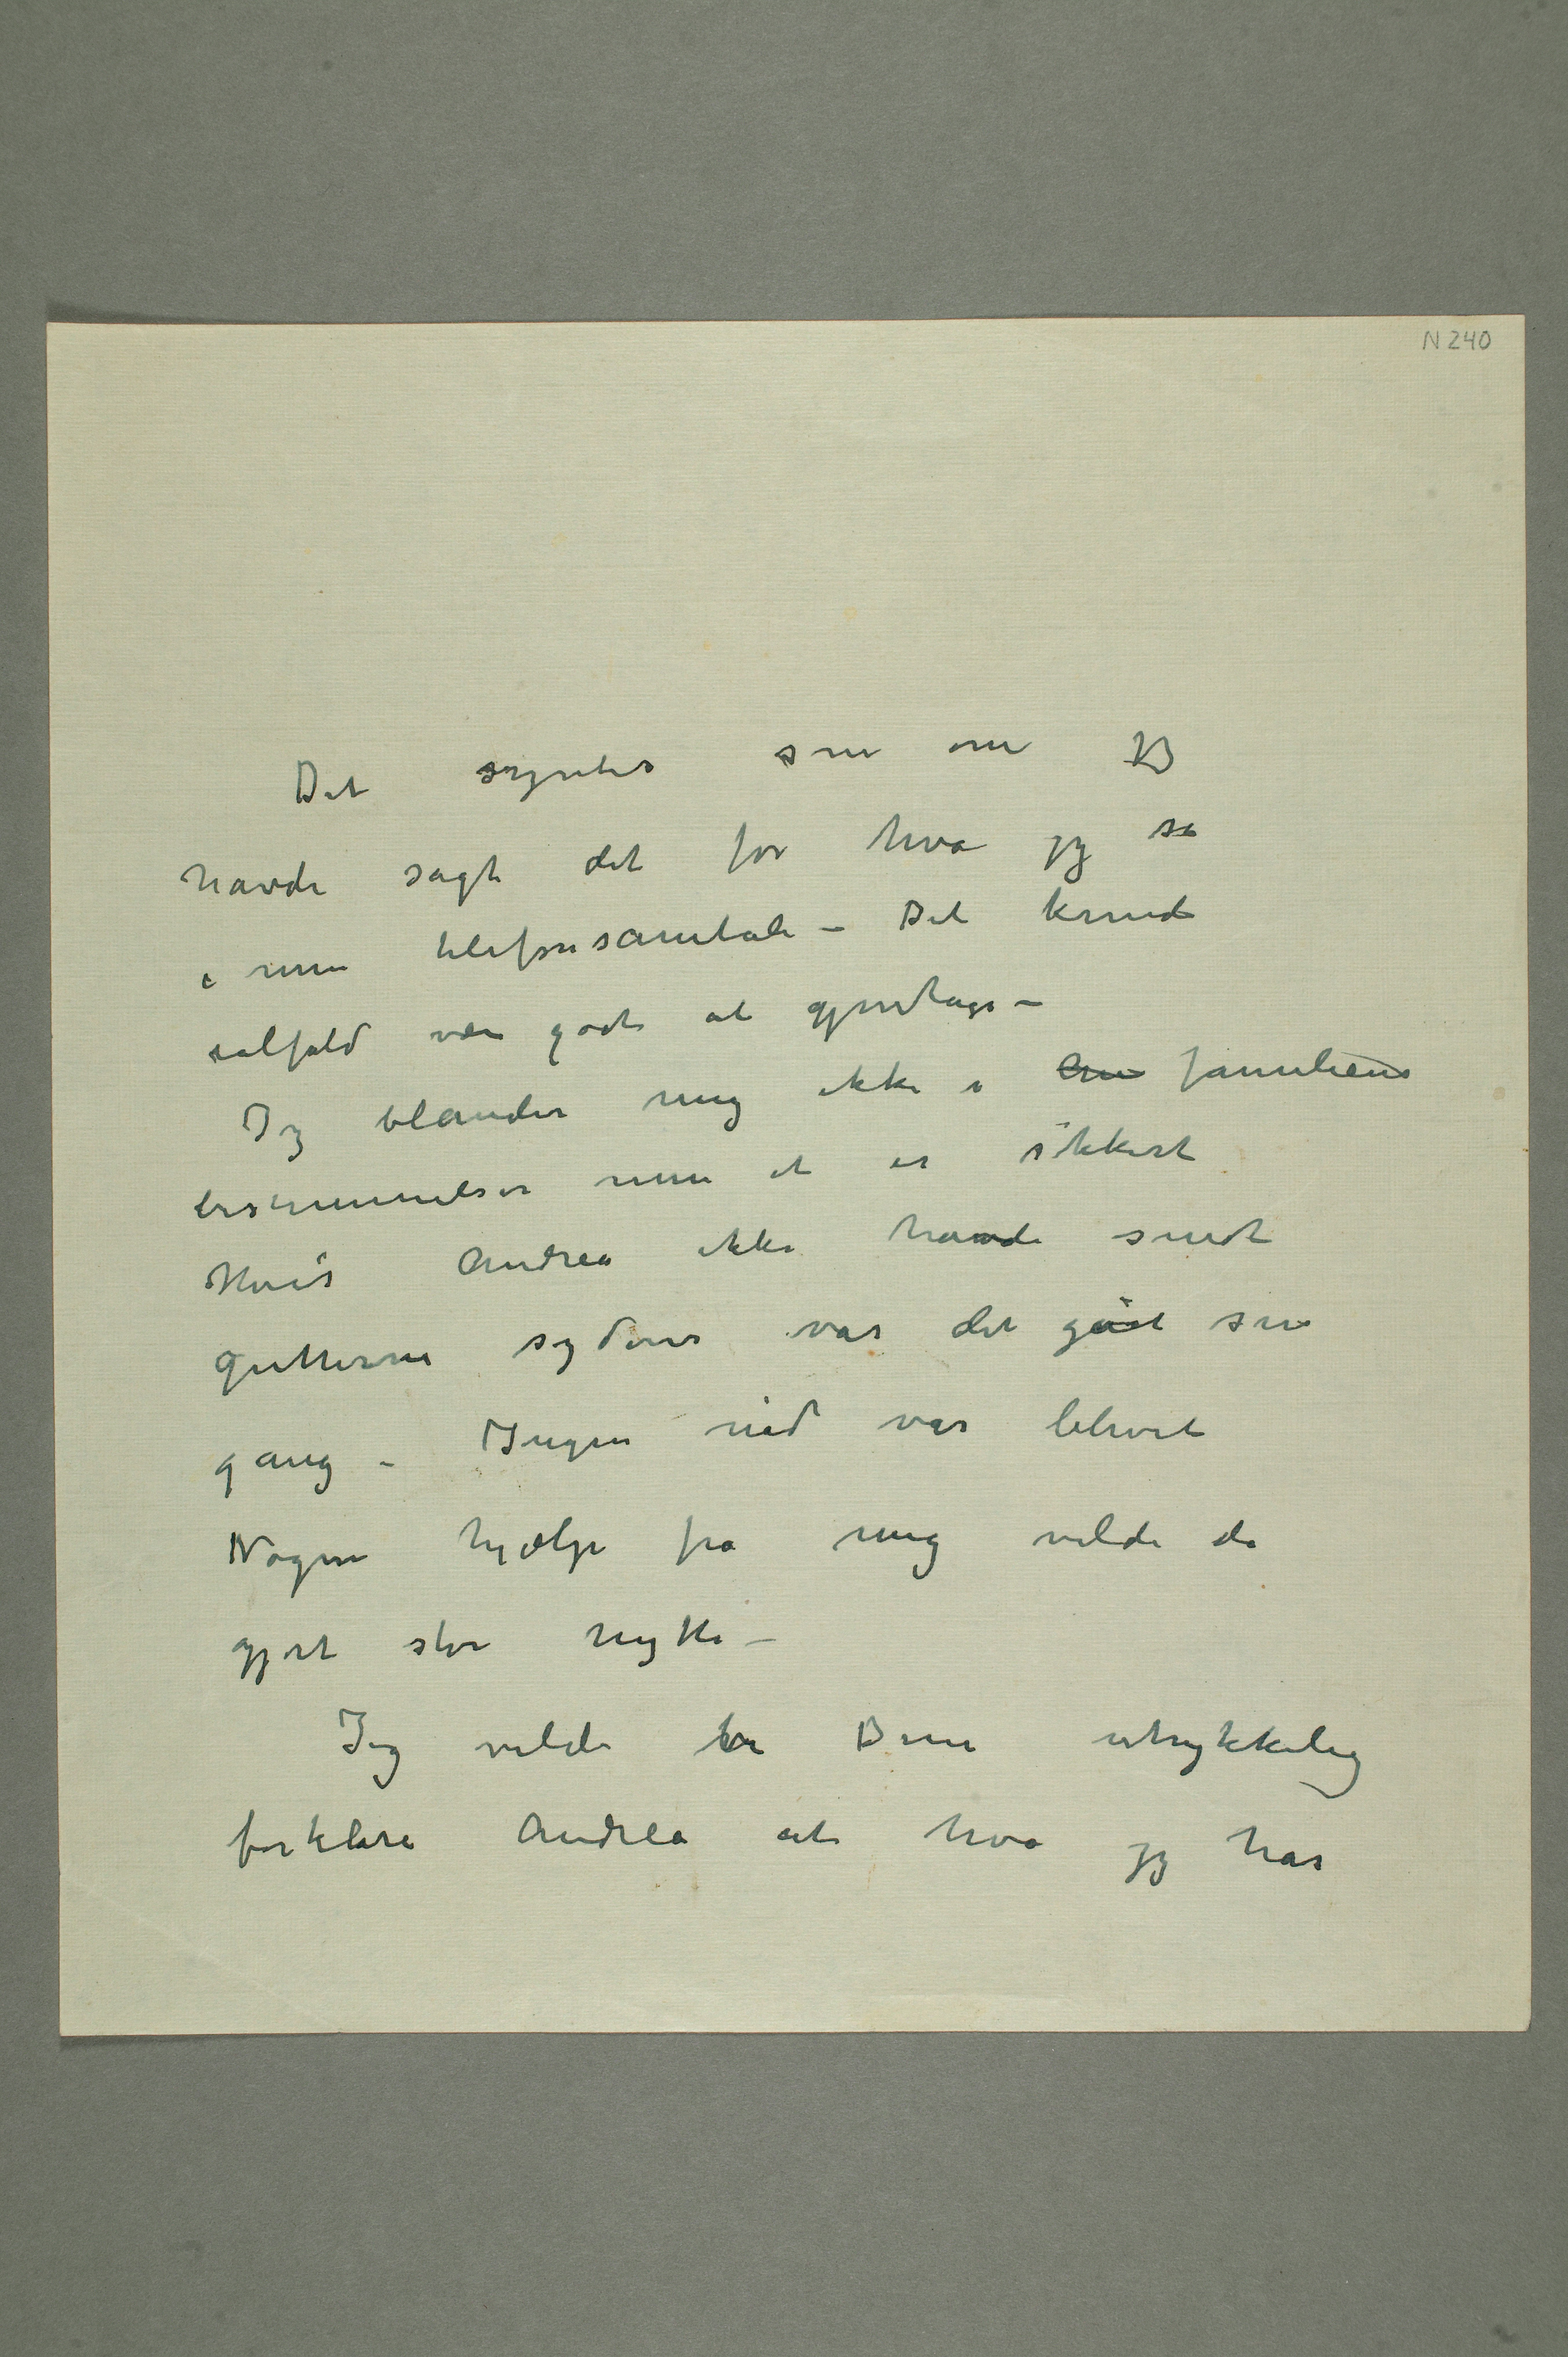 N 240
Det syntes som om jeg
havde sagt det før hva jeg sa
i min telefonsamtale – Det kunde
ialfald være godt at gjentage –
Jeg blander mig ikke i familiens
bestemmelser men et er sikkert
Hvis Andrea ikke havde sendt
gutterne sydover var det gåt sin
gang – Ingen nød var blevet
Nogen hjælp fra mig vilde da
gjort stor nytte –
Jeg vilde be Dem utrykkelig
forklare Andrea at hva jeg har